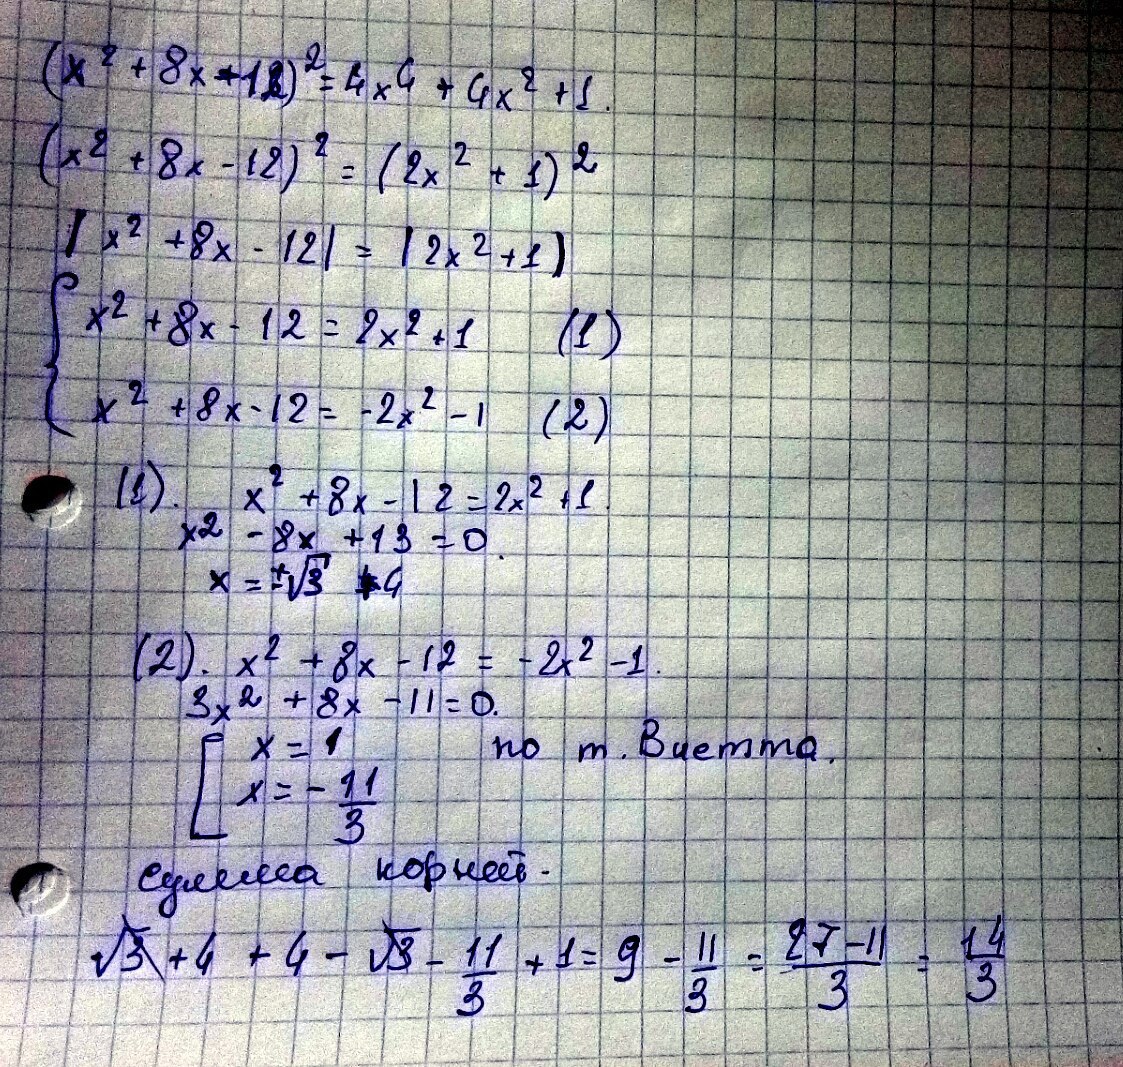 (x² + 8x - 12)² = 4x⁴ + 4x² + 1.
(x² + 8x - 12)² = (2x² + 1)²
|x² + 8x - 12| = |2x² + 1|
{ x² + 8x - 12 = 2x² + 1 (1)
x² + 8x - 12 = -2x² - 1 (2)
(1). x² + 8x - 12 = 2x² + 1.
x² - 8x + 13 = 0.
x = ±√3 + 4
(2). x² + 8x - 12 = -2x² - 1.
3x² + 8x - 11 = 0.
[ x = 1 по т. Виетта.
x = - 11/3
Сумма корней -
√3 + 4 + 4 - √3 - 11/3 + 1 = 9 - 11/3 = (27 - 11)/3 = 14/3